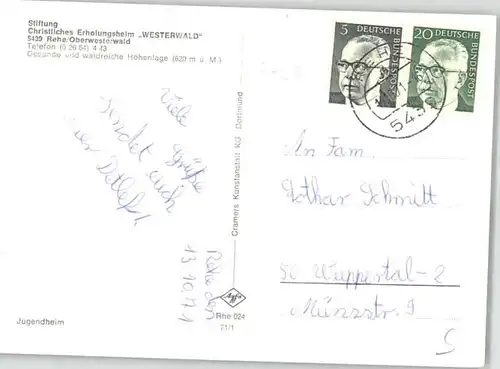 Stiftung
Christliches Erholungsheim „WESTERWALD"
5439 Rehe/Oberwesterwald
Telefon (0 26 64) 4 43
Gesunde und waldreiche Höhenlage (620 m ü. M.)
5 DEUTSCHE BUNDESPOST
20 DEUTSCHE BUNDESPOST
Viele
Grüße
sendet euch
euer Detlef
Rehe den
13.10.71
Cramers Kunstanstalt KG Dortmund
An Fam.
Lothar Schmitt
56 Wuppertal-2
Münzstr. 9
5
Agfa
Rhe 024
71/1
Jugendheim